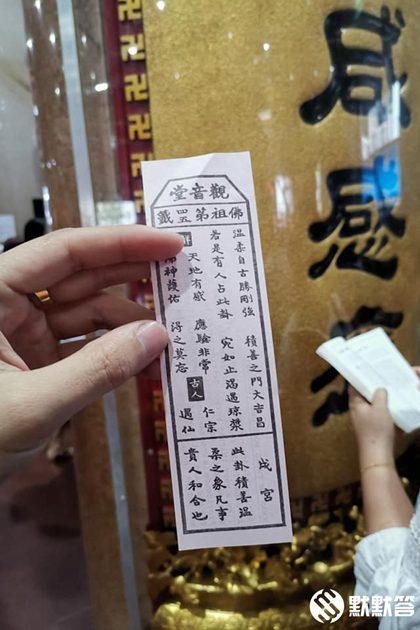 觀音堂
佛祖第四五籤
溫柔自古勝剛強 積善之門大吉昌
若是有人占此卦 宛如正渴遇瓊漿
天地有感 應驗非常
佛神護佑 得之莫忘
古人 仁宗遇仙
戌宮
此卦積善溫
柔之象凡事
貴人和合也
咸感
默默答